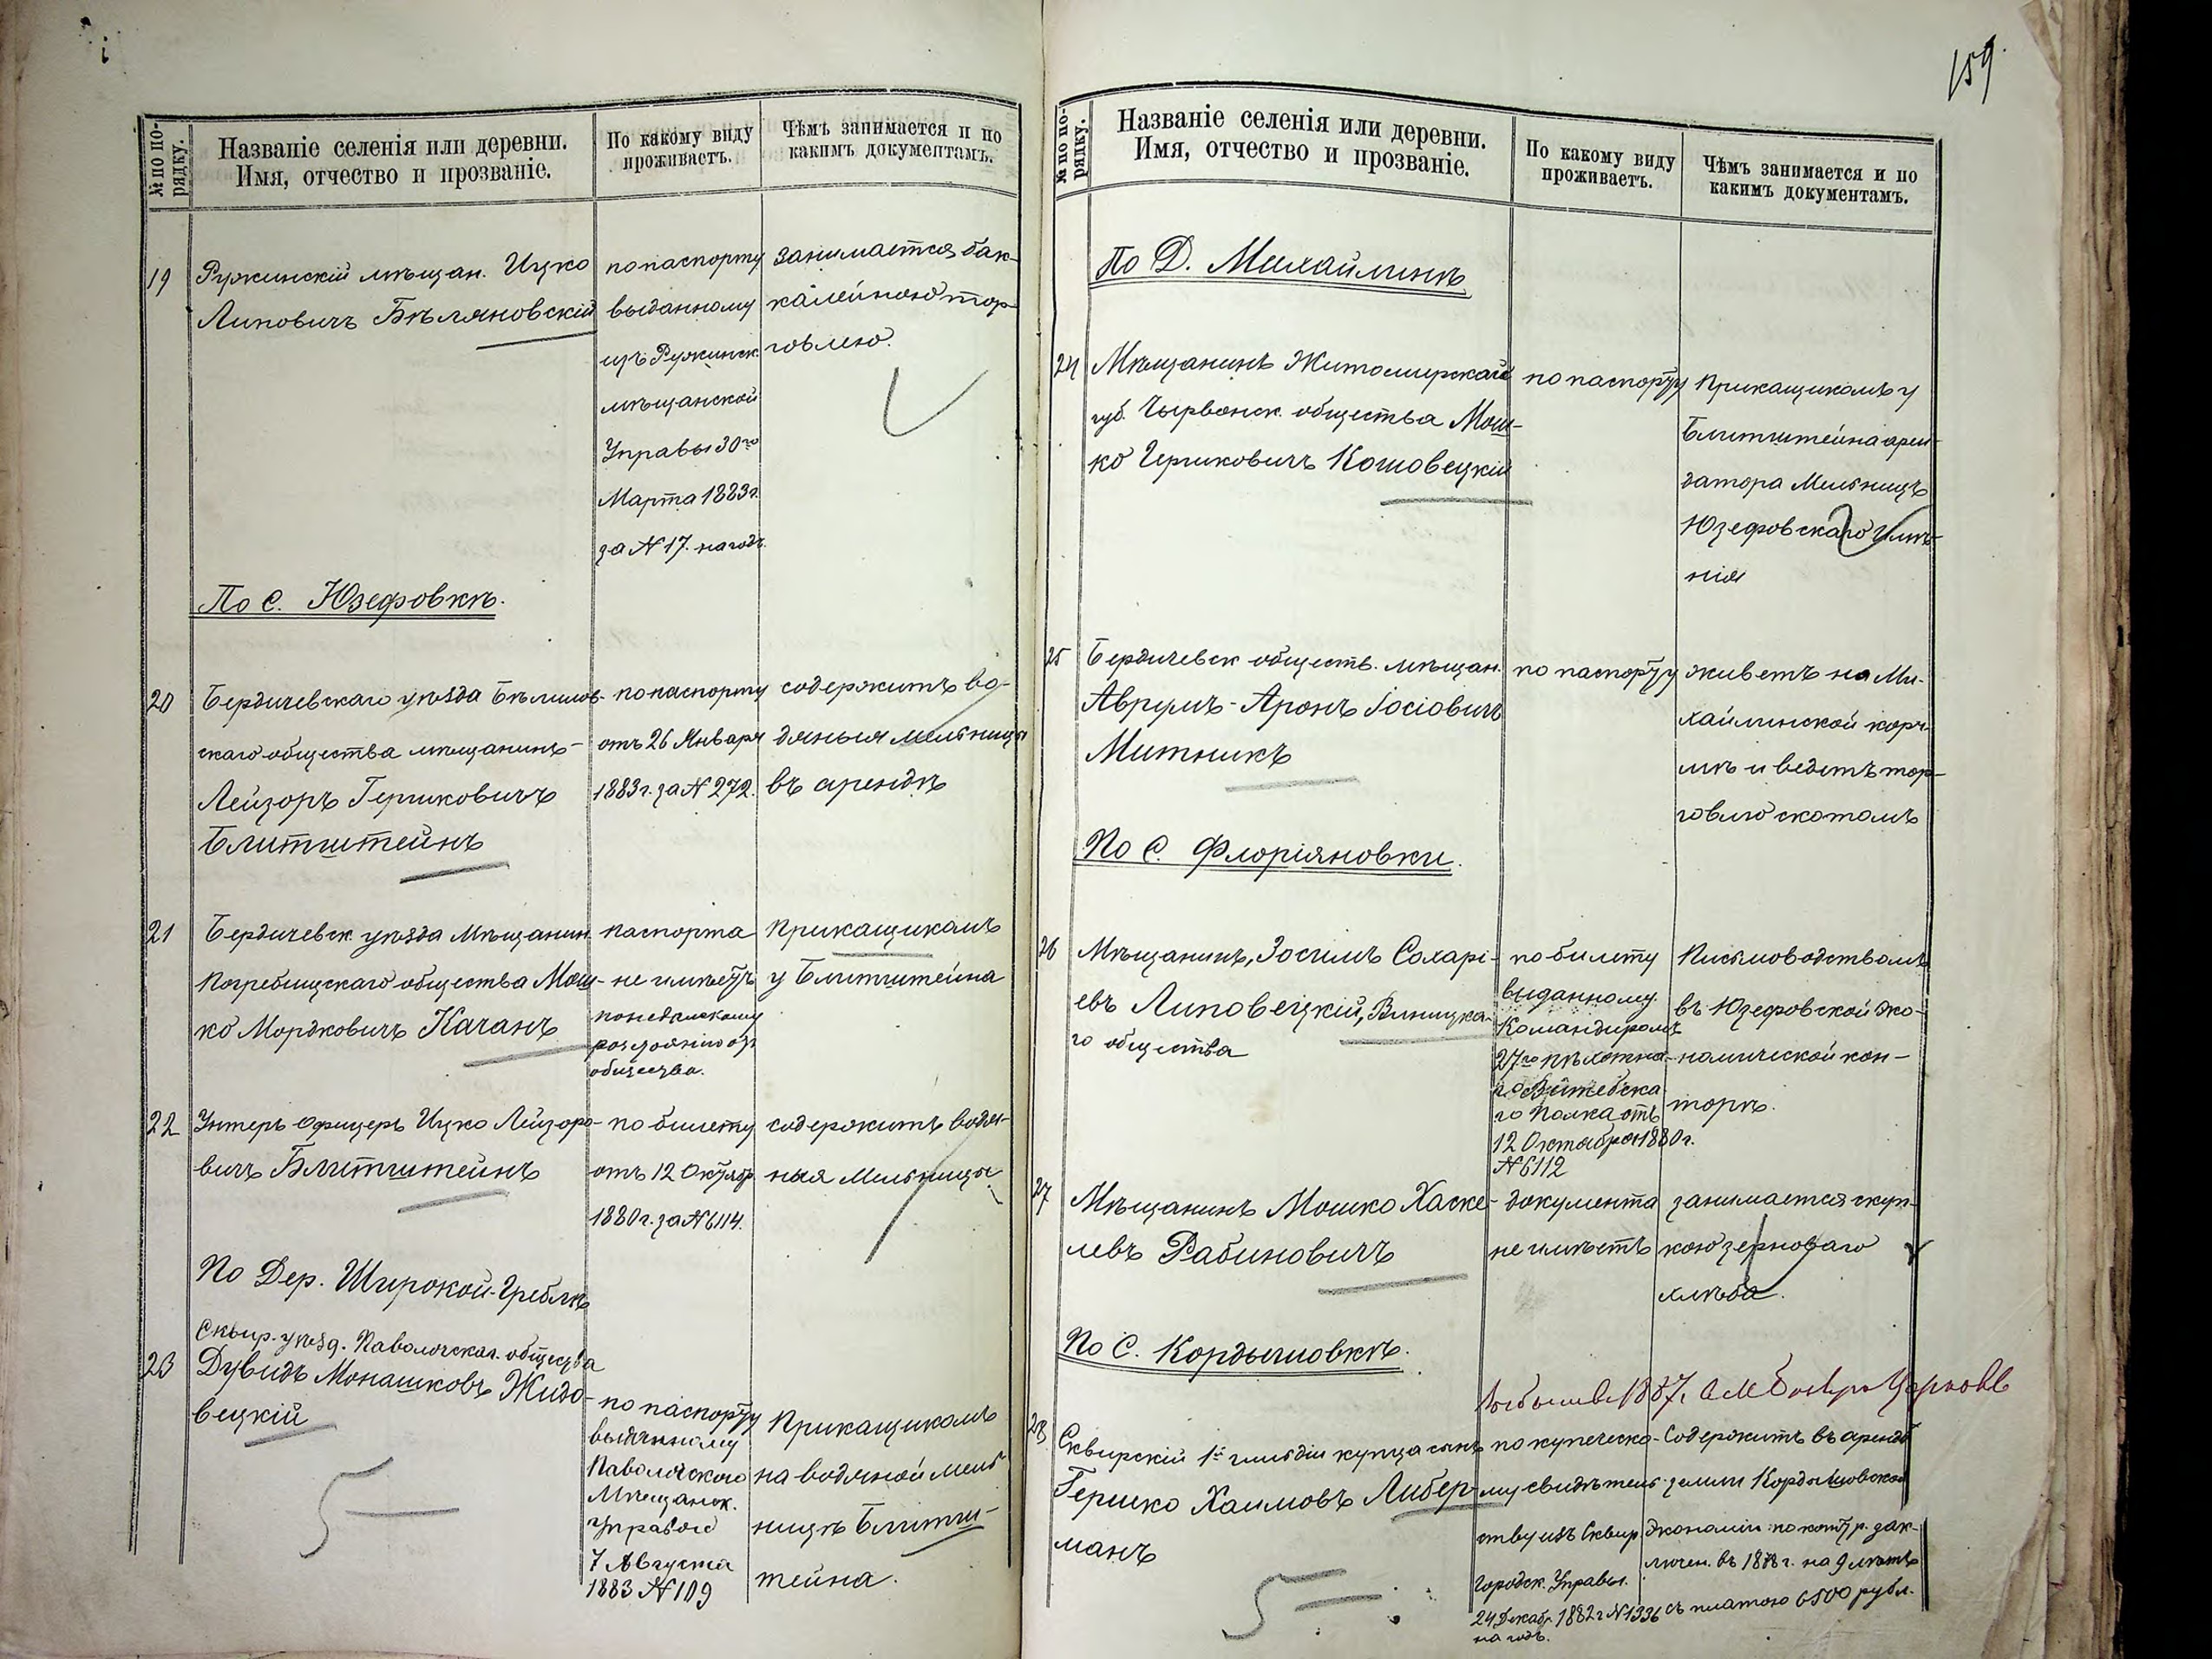 159
№ по по-
рядку.
Названіе селенія или деревни.
Имя, отчество и прозваніе.
По какому виду
проживаетъ.
Чѣмъ занимается и по
какимъ документамъ.
19
Ружинскій мѣщан. Ицко
Липовичъ Бѣляновскій
по паспорту
выданному
изъ Ружинск.
мѣщанской
Управы 30го
Марта 1883г.
за № 17. на годъ.
занимается бак-
калейною тор-
говлею.
По С. Юзефовкѣ.
20
Бердичевскаго уѣзда Бѣлилов-
скаго общества мѣщанинъ-
Лейзоръ Гершковичъ
Блитштейнъ
по паспорту
отъ 26 Января
1883г. за № 272.
содержитъ во-
дяныя мельницы
въ арендѣ
21
Бердичевск. уѣзда Мѣщанин.
Погребищскаго общества Мош-
ко Мордковичъ Качанъ
паспорта
не имѣетъ
общества.
Прикащикомъ
у Блитштейна
22
Унтеръ Офицеръ Ицко Лейзоро-
вичъ Блитштейнъ
по билету
отъ 12 Октябр.
1880г. за № 6114.
содержитъ водя-
ныя Мельницы
По Дер. Широкой-Греблѣ
Сквир. уѣзд. Паволочскаг. общества
23
Дувидъ Монашковъ Жидо-
вецкій
по паспорту
выданному
Паволочского
Мѣщанск.
Управою
7 Августа
1883 № 109
Прикащикомъ
на водяной мель
ницѣ Блитш-
тейна.
5 —
№ по по-
рядку.
Названіе селенія или деревни.
Имя, отчество и прозваніе.
По какому виду
проживаетъ.
Чѣмъ занимается и по
какимъ документамъ.
По Д. Михайлинѣ
24
Мѣщанинъ Житомирской
губ. Чырвонск. общества Мош-
ко Гершковичъ Кошовецкій
по паспорту
Прикащикомъ у
Блитштейна арен-
датора Мельницъ
Юзефовскаго Имѣ-
нія
25
Бердичевск обществ. мѣщан.
Аврумъ-Аронъ Іосіовичъ
Митникъ
по паспорту
живетъ на Ми-
хайлинской корч-
мѣ и ведетъ тор-
говлю скотомъ
По С. Флоріяновки.
26
Мѣщанинъ, Зосимъ Сохарі-
евъ Липовецкій, Винницка-
го общества
по билету
выданному
Командиромъ
27го пѣхотна-
го Витебска
го Полка отъ
12 Октября 1880г.
№ 6112
Письмоводствомъ
въ Юзефовской Эко-
номической кон-
торѣ.
27
Мѣщанинъ Мошко Хаске-
левъ Рабиновичъ
документа
не имѣетъ
занимается скуп-
кою зерноваго
хлѣба.
По С. Кордышовкѣ.
28
Сквирскій 1й гильдіи купца сынъ
Гершко Хаимовъ Либер
манъ
по купеческо-
му свидѣтель
ству изъ Сквир.
Городск. Управы.
24 Декабр. 1882г № 1336
на годъ.
Содержитъ въ аренд
земли Кордышовской
Экономіи по контр. зак-
лючен. въ 1878г. на 9 лѣтъ
съ платою 6500 рубл.
5 —